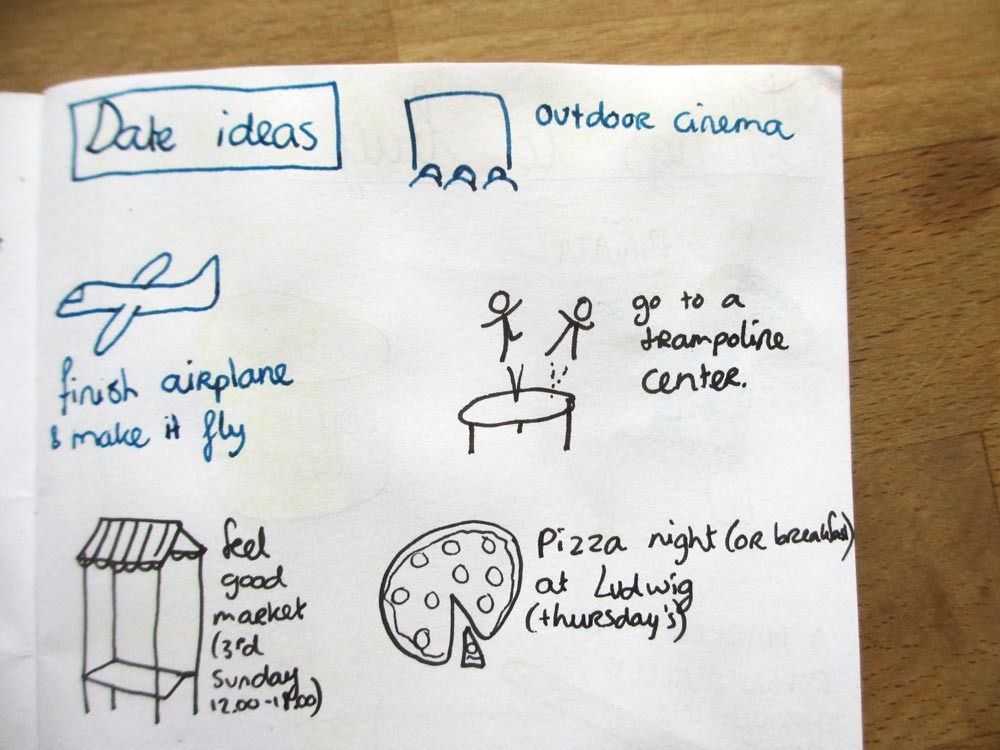 Date ideas
outdoor cinema
finish airplane
& make it fly
go to a
trampoline
center.
feel
good
market
(3rd
Sunday
12.00-18.00)
Pizza night (or breakfast)
at Ludwig
(thursday's)